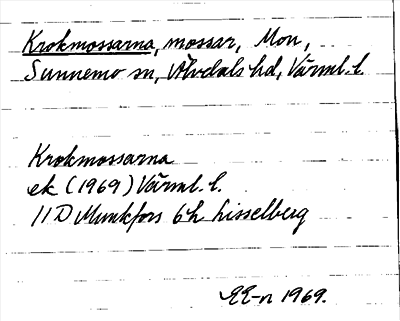 Krokmossarna, mossar, Mon,
Sunnemo sn, Älvdals hd, Värml. l.
Krokmossarna
ek (1969) Värml. l.
11D Munkfors 6h Lisselberg
EE-n 1969.